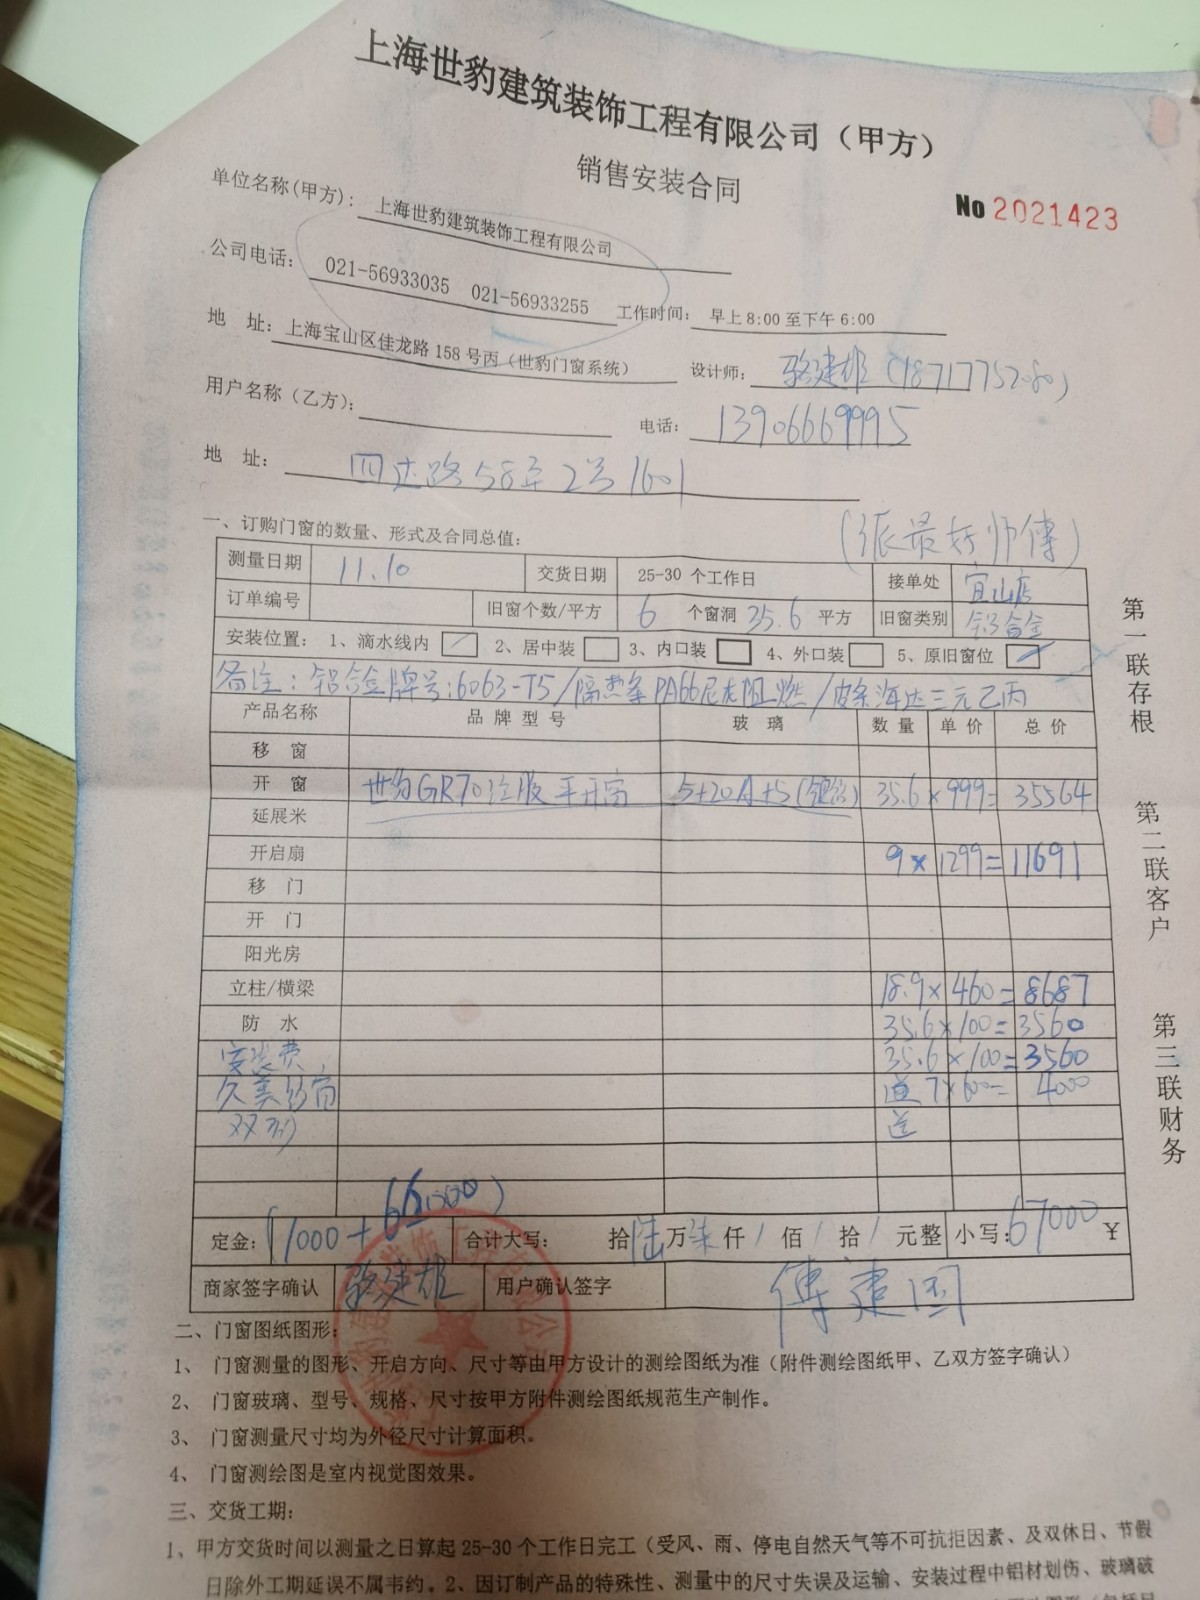 上海世豹建筑装饰工程有限公司（甲方）
销售安装合同
No 2021423
单位名称(甲方): 上海世豹建筑装饰工程有限公司
公司电话: 021-56933035 021-56933255 工作时间: 早上8:00至下午6:00
地 址: 上海宝山区佳龙路158号丙（世豹门窗系统） 设计师: 骆建雄(18717752780)
用户名称（乙方）: 电话: 13906669995
地 址: 四达路58弄2号1601
一、订购门窗的数量、形式及合同总值: (派最好师傅)
测量日期 11.10 交货日期 25-30 个工作日 接单处 宜山店
订单编号 旧窗个数/平方 6 个窗洞 35.6 平方 旧窗类别 铝合金
安装位置: 1、滴水线内 2、居中装 3、内口装 4、外口装 5、原旧窗位
备注: 铝合金牌号:6063-T5/隔热条PA66尼龙阻燃/皮条海达三元乙丙
产品名称 品牌型号 玻璃 数量 单价 总价
移 窗
开 窗 世豹GR70 平开窗 5+20A+5 35.6 × 999= 35564
延展米
开启扇 9 × 1299= 11691
移 门
开 门
阳光房
立柱/横梁 18.9 × 460= 8687
防 水 35.6 × 100= 3560
安装费 35.6 × 100= 3560
久美纱窗 送 7×600= 4000
双 送
定金: (1000+66000) 合计大写: 拾陆万柒仟/佰/拾/元整 小写: 67000 ¥
商家签字确认 骆建雄 用户确认签字 傅建国
二、门窗图纸图形:
1、 门窗测量的图形、开启方向、尺寸等由甲方设计的测绘图纸为准（附件测绘图纸甲、乙双方签字确认）
2、 门窗玻璃、型号、规格、尺寸按甲方附件测绘图纸规范生产制作。
3、 门窗测量尺寸均为外径尺寸计算面积。
4、 门窗测绘图是室内视觉图效果。
三、交货工期:
1、甲方交货时间以测量之日算起25-30个工作日完工（受风、雨、停电自然天气等不可抗拒因素、及双休日、节假
日除外工期延误不属韦约。2、因订制产品的特殊性、测量中的尺寸失误及运输、安装过程中铝材划伤、玻璃破
第一联存根
第二联客户
第三联财务